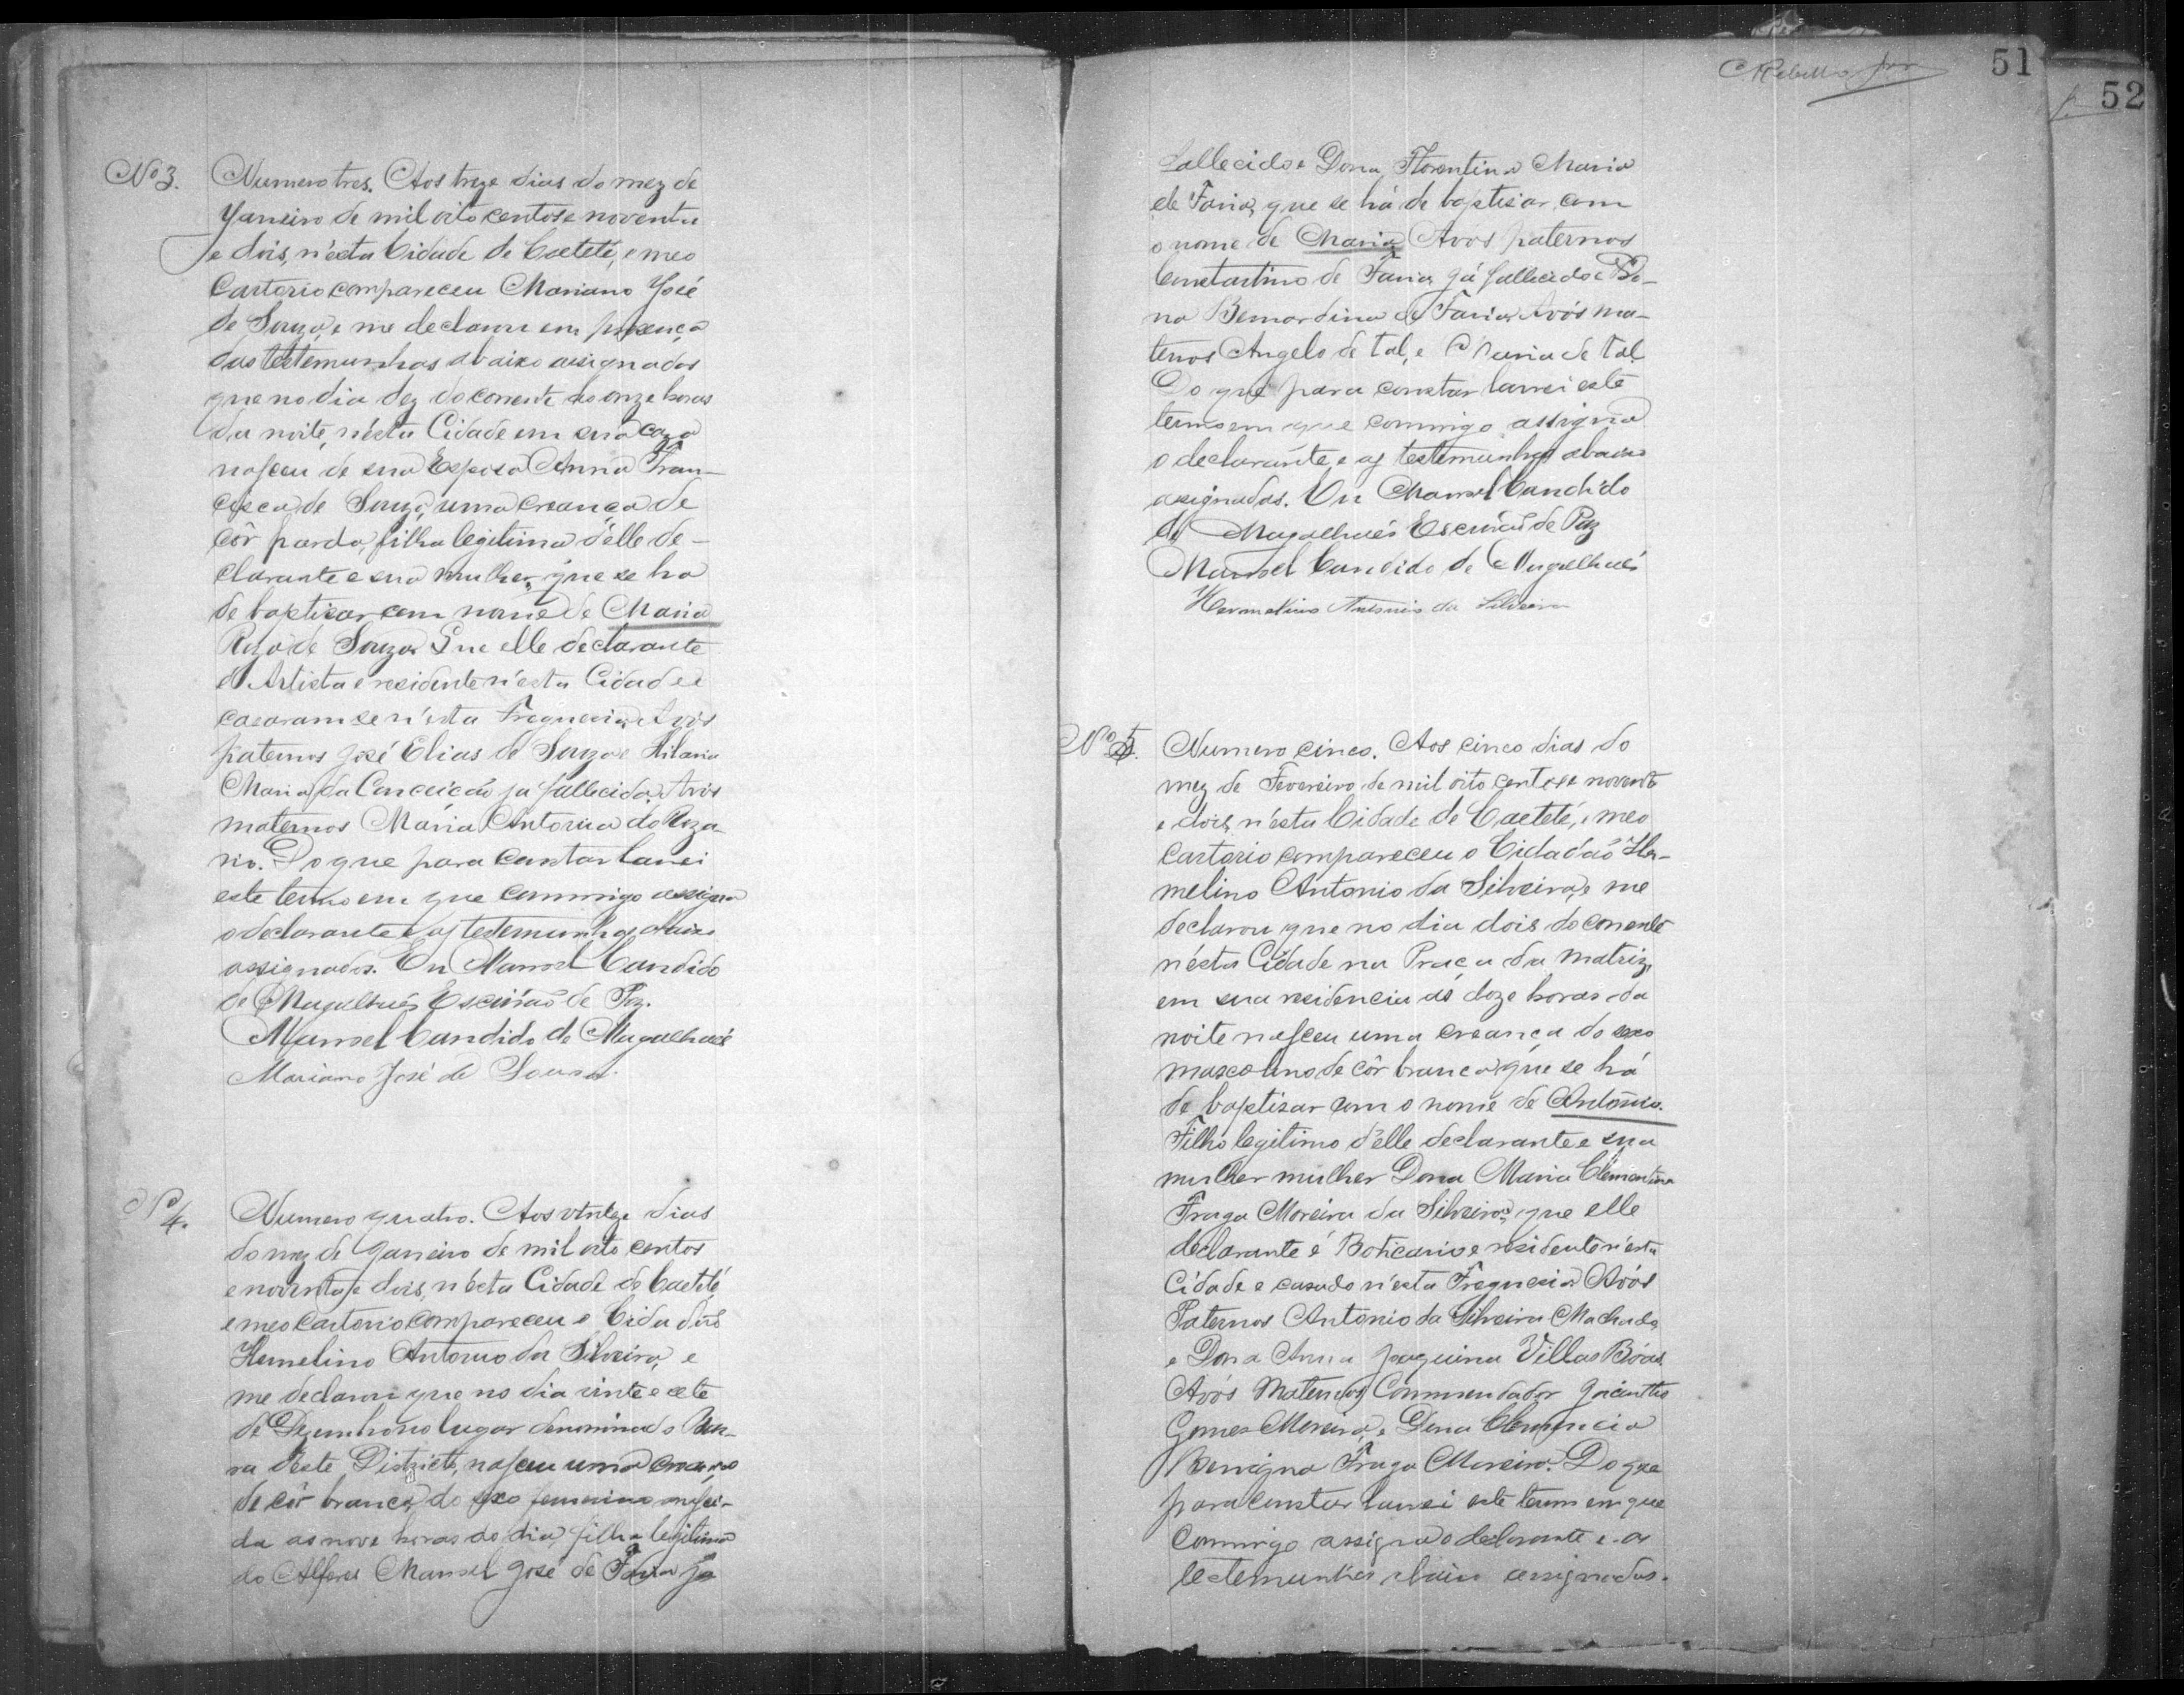 Nº 3.
Numero tres. Aos treze dias do mez de
Janeiro de mil oito centos e noventa
e dois, n'esta Cidade de Caeteté, e meo
Cartorio compareceu Mariano José
de Souza, e me declarou em presença
das testemunhas abaixo assignadas
que no dia dez do corrente as onze horas
da noite, n'esta Cidade em sua caza
nasceu de sua Esposa Anna Fran-
cisca de Souza, uma creança de
côr parda, filha legitima d'elle de-
clarante e sua mulher, que se ha
de baptisar com nome de Maria
de Souza. Que elle declarante
é Artista e residente n'esta Cidade e
casaram se n'esta Freguesia, Avós
paternos José Elias de Souza e Hilaria
Maria da Conceicão já fallecida, Avós
maternos Maria Antonia do Roza-
rio. Do que para constar lavrei
este termo em que commigo assigna
o declarante e as testemunhas abaixo
assignados. Eu Manoel Candido
de Magalhaés Escrivão de Paz.
Manoel Candido de Magalhaés
Mariano José de Sousa.
Nº 4.
Numero quatro. Aos dias
do mez de Janeiro de mil oito centos
e noventa e dois, n'esta Cidade de Caetité,
e meo Cartorio compareceu o Cidadão
Hermelino Antonio da Silveira, e
me declarou que no dia vinte e sete
de Dezembro no lugar denominado
d'este Districto, nasceu uma creança
de côr branca, do sexo femenino nasci-
da as nove horas do dia, filha legitima
do Alferes Manoel José de Faria já
C Rebello Jor
51
52
fallecido e Dona Florentina Maria
de Faria, que se há de baptisar com
o nome de Maria, Avós paternos
Constantino de Faria já fallecido e Do-
na Bernardina de Faria, Avós ma-
ternos Angelo de tal, e Maria de tal.
Do que para constar lavrei este
termo em que commigo assigna
o declarante e as testemunhas abaixo
assignadas. Eu Manoel Candido
de Magalhaés Escrivão de Paz
Manoel Candido de Magalhaés
Hermelino Antonio da Silveira
Nº 5.
Numero cinco. Aos cinco dias do
mez de Fevereiro de mil oito centos e noventa
e dois, n'esta Cidade de Caeteté, e meo
Cartorio compareceu o Cidadão Her-
melino Antonio da Silveira, e me
declarou que no dia dois do corrente
n'esta Cidade na Praça da Matriz,
em sua residencia ás doze horas da
noite nasceu uma creança do sexo
mascolino de côr branca, que se há
de baptisar com o nome de Antonio.
Filho legitimo d'elle declarante e sua
mulher mulher Dona Maria Clementina
Fraga Moreira da Silveira, que elle
declarante é Boticario e residente n'esta
Cidade e casado n'esta Freguesia Avós
Paternos Antonio da Silveira Machado,
e Dona Anna Joaquina Villas Bôas,
Avós Maternos Commendador Jacintho
Gomes Moreira, e Dona Clemencia
Benigna Fraga Moreira. Do que
para constar lavrei este termo em que
commigo assigna o declarante e as
testemunhas abaixo assignadas.